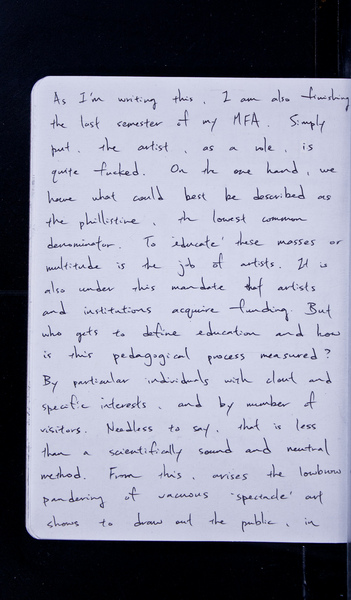 As I'm writing this, I am also finishing
the last semester of my MFA. Simply
put, the artist, as a role, is
quite fucked. On the one hand, we
have what could best be described as
the phillistine, the lowest common
denominator. To 'educate' these masses or
multitude is the job of artists. It is
also under this mandate that artists
and institutions acquire funding. But
who gets to define education and how
is this pedagogical process measured?
By particular individuals with clout and
specific interests, and by number of
visitors. Needless to say, that is less
than a scientifically sound and neutral
method. From this, arises the lowbrow
pandering of vacuous 'spectacle' art
shows to draw out the public, in